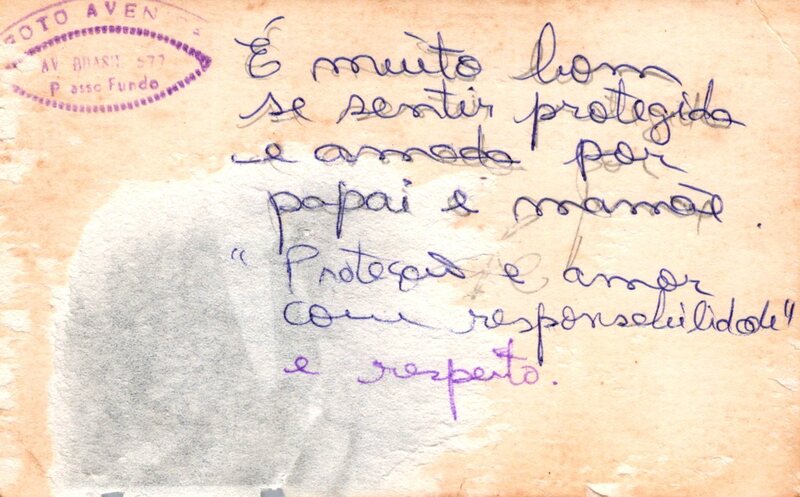 FOTO AVENIDA
AV. BRASIL 577
Passo Fundo
É muito bom
se sentir protegida
e amada por
papai e mamãe.
"Proteção e amor
com responsabilidade"
e respeito.